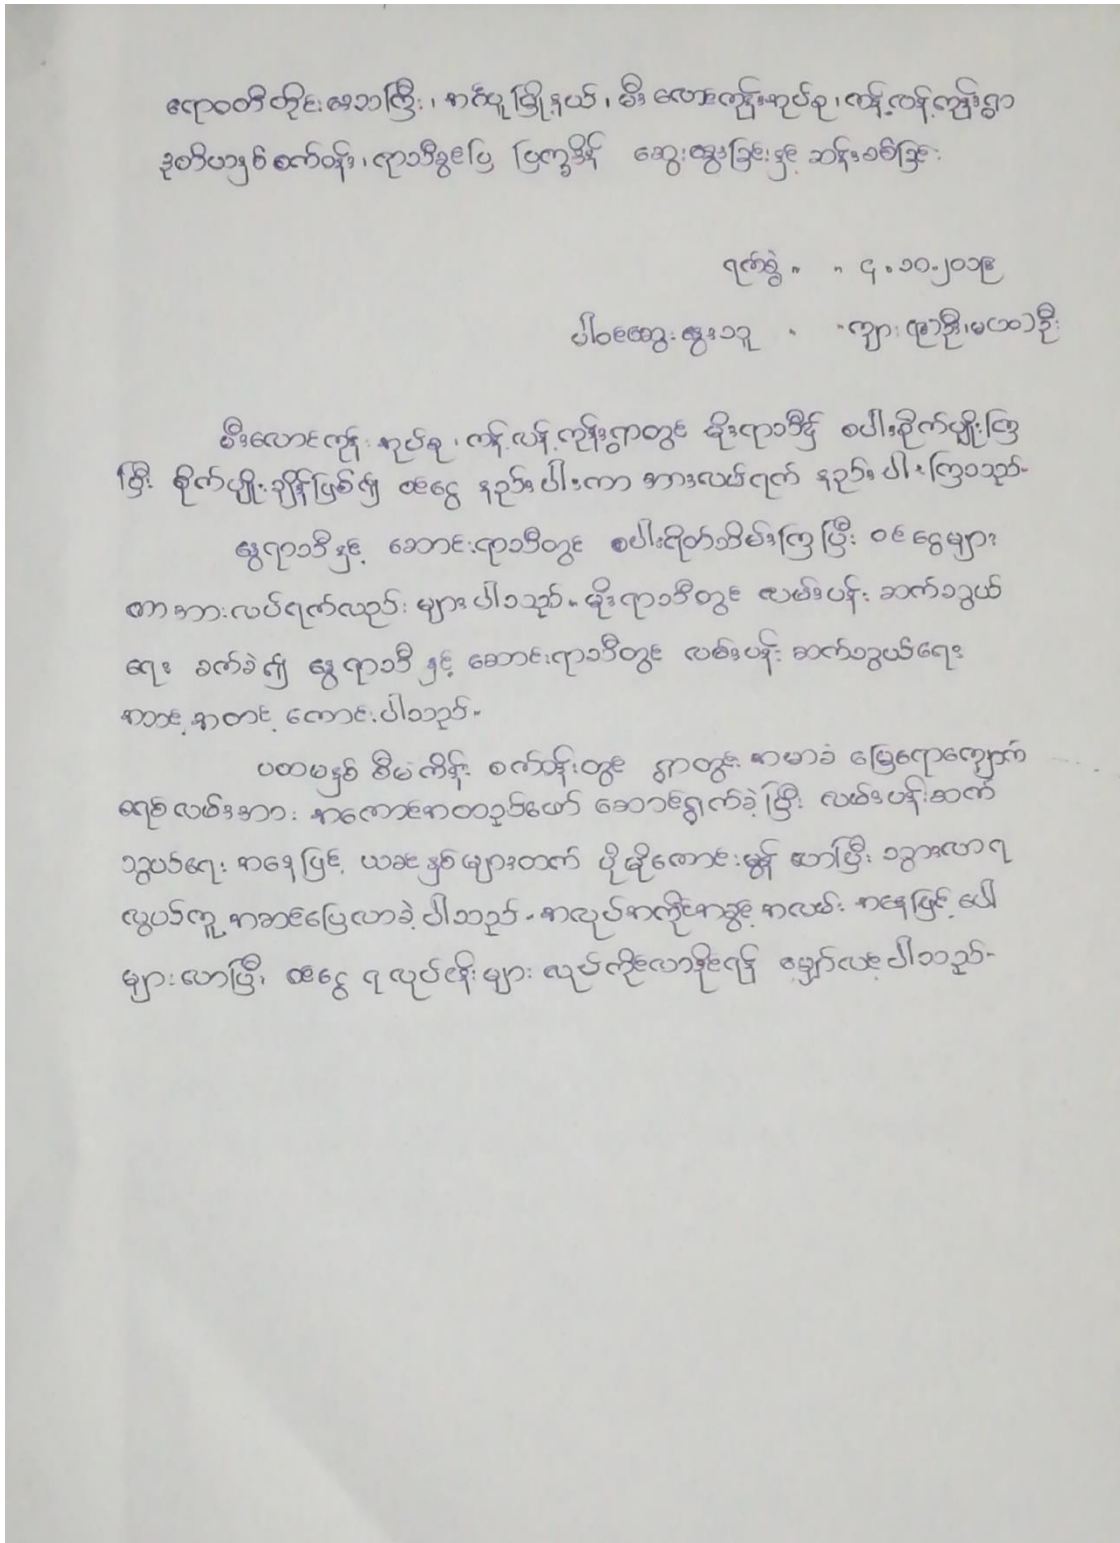 ဧရာဝတီတိုင်းဒေသကြီး၊ အင်္ဂပူမြို့နယ်၊ မီးလောင်ကုန်းအုပ်စု၊ ကန့်လန့်ကုန်းရွာ
ဒုတိယနှစ်စက်ဝန်း၊ ရာသီခွင်ပြ ပြက္ခဒိန် ဆွေးနွေးခြင်းနှင့် ဆန်းစစ်ခြင်း
ရက်စွဲ - - ၄.၁၀.၂၀၁၉
ပါဝင်ဆွေးနွေးသူ - - ကျား ( ) ဦး၊ မ ( ) ဦး
မီးလောင်ကုန်းအုပ်စု၊ ကန့်လန့်ကုန်းရွာတွင် မိုးရာသီ၌ စပါးစိုက်ပျိုးကြ
ပြီး စိုက်ပျိုးချိန်ဖြစ်၍ ဝင်ငွေ နည်းပါးကာ အားလပ်ရက် နည်းပါးကြသည်-
နွေရာသီနှင့် ဆောင်းရာသီတွင် စပါးရိတ်သိမ်းကြပြီး ဝင်ငွေများ
ကာ အားလပ်ရက်လည်း များပါသည်- မိုးရာသီတွင် လမ်းပန်း ဆက်သွယ်
ရေး ခက်ခဲ၍ နွေရာသီ နှင့် ဆောင်းရာသီတွင် လမ်းပန်း ဆက်သွယ်ရေး
အသင့်အတင့် ကောင်းပါသည်-
ပထမနှစ် စီမံကိန်း စက်ဝန်းတွင် ရွာတွင်း အမာခံ မြေရောကျောက်
ရောလမ်းအား အကောင်အထည်ဖော် ဆောင်ရွက်ခဲ့ပြီး လမ်းပန်းဆက်
သွယ်ရေး အနေဖြင့် ယခင်နှစ်များထက် ပိုမိုကောင်းမွန် လာပြီး သွားလာရ
လွယ်ကူ အဆင်ပြေလာခဲ့ပါသည်- အလုပ်အကိုင်အခွင့်အလမ်း အနေဖြင့် ပေါ
များလာပြီး ဝင်ငွေ ရလုပ်ငန်းများ လုပ်ကိုင်လာနိုင်ရန် မျှော်လင့်ပါသည်-